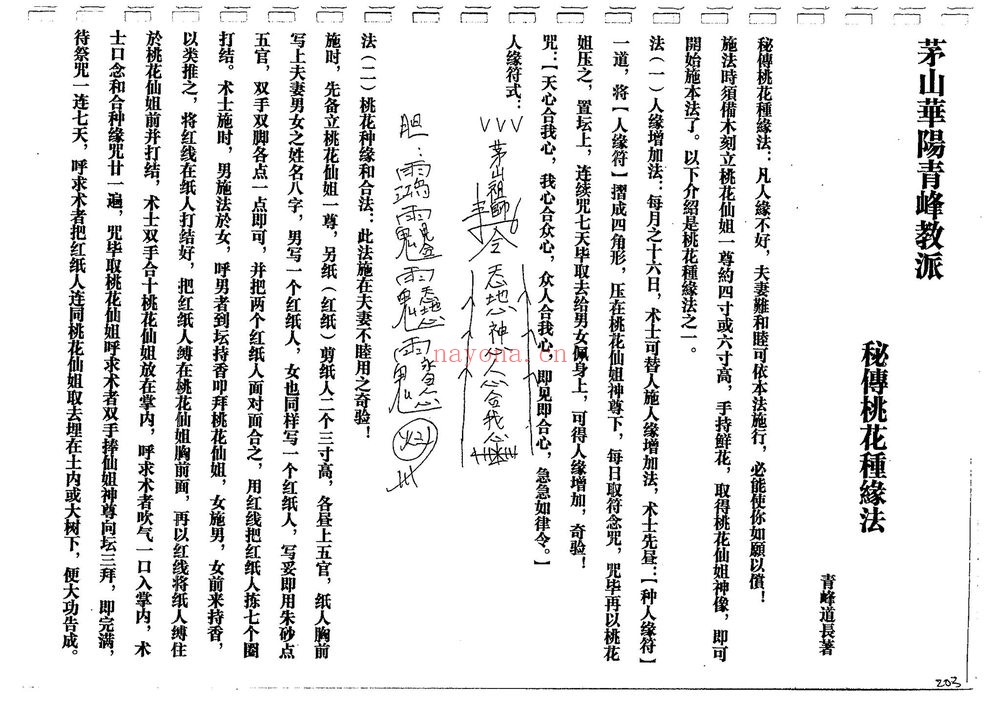 茅山華陽青峰教派
秘傳桃花種緣法
青峰道長著
秘傳桃花種緣法：凡人緣不好，夫妻難和睦可依本法施行，必能使你如願以償！
施法時須備木刻立桃花仙姐一尊約四寸或六寸高，手持鮮花，取得桃花仙姐神像，即可
開始施本法了。以下介紹是桃花種緣法之一。
法（一）人缘增加法：每月之十六日，术士可替人施人缘增加法，术士先昼：【种人缘符】
一道，将【人缘符】摺成四角形，压在桃花仙姐神尊下，每日取符念咒，咒毕再以桃花
姐压之，置坛上，连续咒七天毕取去给男女佩身上，可得人缘增加，奇验！
咒：【天心合我心，我心合众心，众人合我心，即见即合心，急急如律令。】
人缘符式：
茅山祖師
令
天地心神人心合我心
胆：
法（二）桃花种缘和合法：此法施在夫妻不睦用之奇验！
施时，先备立桃花仙姐一尊，另纸（红纸）剪纸人二个三寸高，各昼上五官，纸人胸前
写上夫妻男女之姓名八字，男写一个红纸人，女也同样写一个红纸人，写妥即用朱砂点
五官，双手双脚各点一点即可，并把两个红纸人面对面合之，用红线把红纸人拣七个圈
打结。术士施时，男施法於女，呼男者到坛持香叩拜桃花仙姐，女施男，女前来持香，
以类推之，将红线在纸人打结好，把红纸人缚在桃花仙姐胸前面，再以红线将纸人缚住
於桃花仙姐前并打结，术士双手合十桃花仙姐放在掌内，呼求术者吹气一口入掌内，术
士口念和合种缘咒廿一遍，咒毕取桃花仙姐呼求术者双手捧仙姐神尊向坛三拜，即完满，
待祭咒一连七天，呼求术者把红纸人连同桃花仙姐取去埋在土内或大树下，便大功告成。
nayona.cn
203